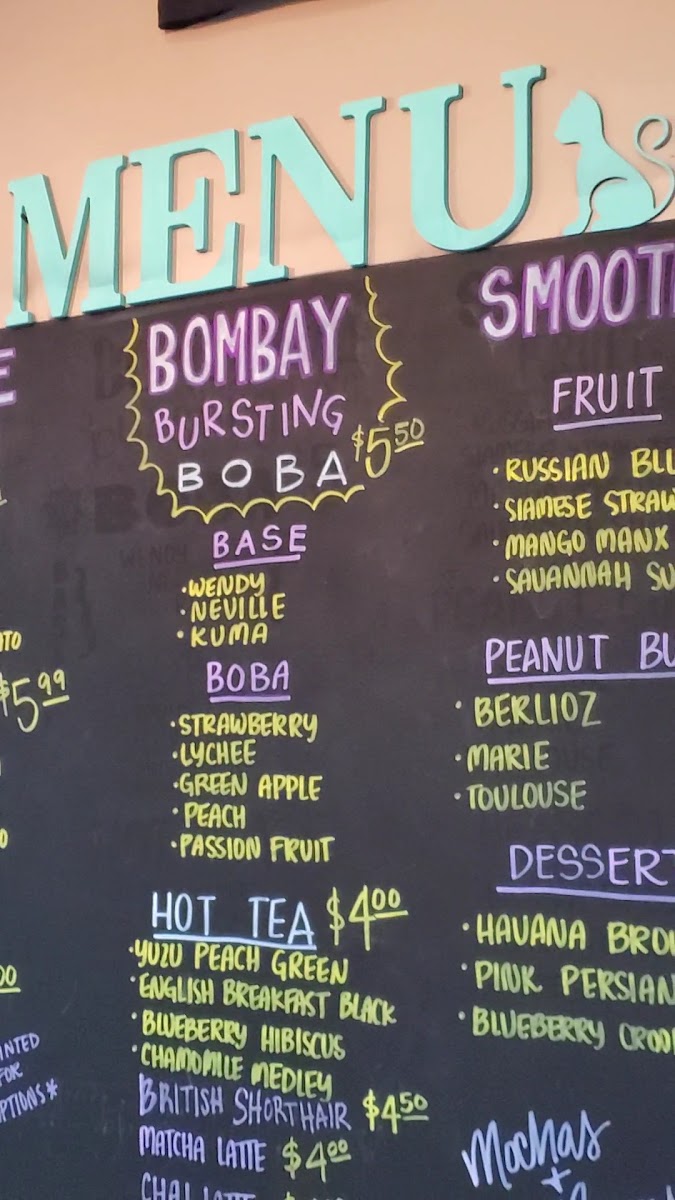 MENU
BOMBAY
BURSTING
BOBA $5.50
BASE
• WENDY
• NEVILLE
• KUMA
BOBA
• STRAWBERRY
• LYCHEE
• GREEN APPLE
• PEACH
• PASSION FRUIT
HOT TEA $4.00
• YUZU PEACH GREEN
• ENGLISH BREAKFAST BLACK
• BLUEBERRY HIBISCUS
• CHAMOMILE MEDLEY
BRITISH SHORTHAIR $4.50
MATCHA LATTE $4.00
CHAI LATTE
SMOOT
FRUIT
• RUSSIAN BLU
• SIAMESE STRAW
• MANGO MANX
• SAVANNAH SU
PEANUT BU
• BERLIOZ
• MARIE
• TOULOUSE
DESSERT
• HAVANA BROW
• PINK PERSIAN
• BLUEBERRY
Mochas
+
$5.99